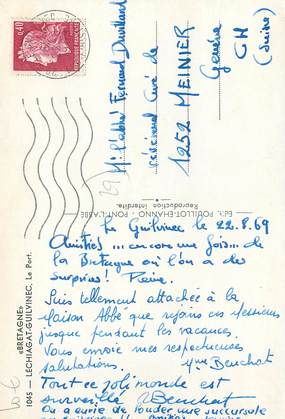 0,40
REPUBLIQUE FRANÇAISE
M. l'abbé Fernand Duvillard
révérend Curé de
1252 MEINIER
Genève
CH
(Suisse)
"BRETAGNE"
1045 — LECHIAGAT-GUILVINEC, Le Port.
Reproduction interdite.
Le Guilvinec le 22.8.69
Amitiés ... encore une fois ... de
la Bretagne où l'on a des
surprises! Pierre.
Suis tellement attachée à la
Maison Abbé que rejoins ces Messieurs
jusque pendant les vacances.
Vous envoie mes respectueuses
salutations. Mme Beuchat
Tout ce joli monde est
surveillé Beuchat
On a envie de fonder une succursale